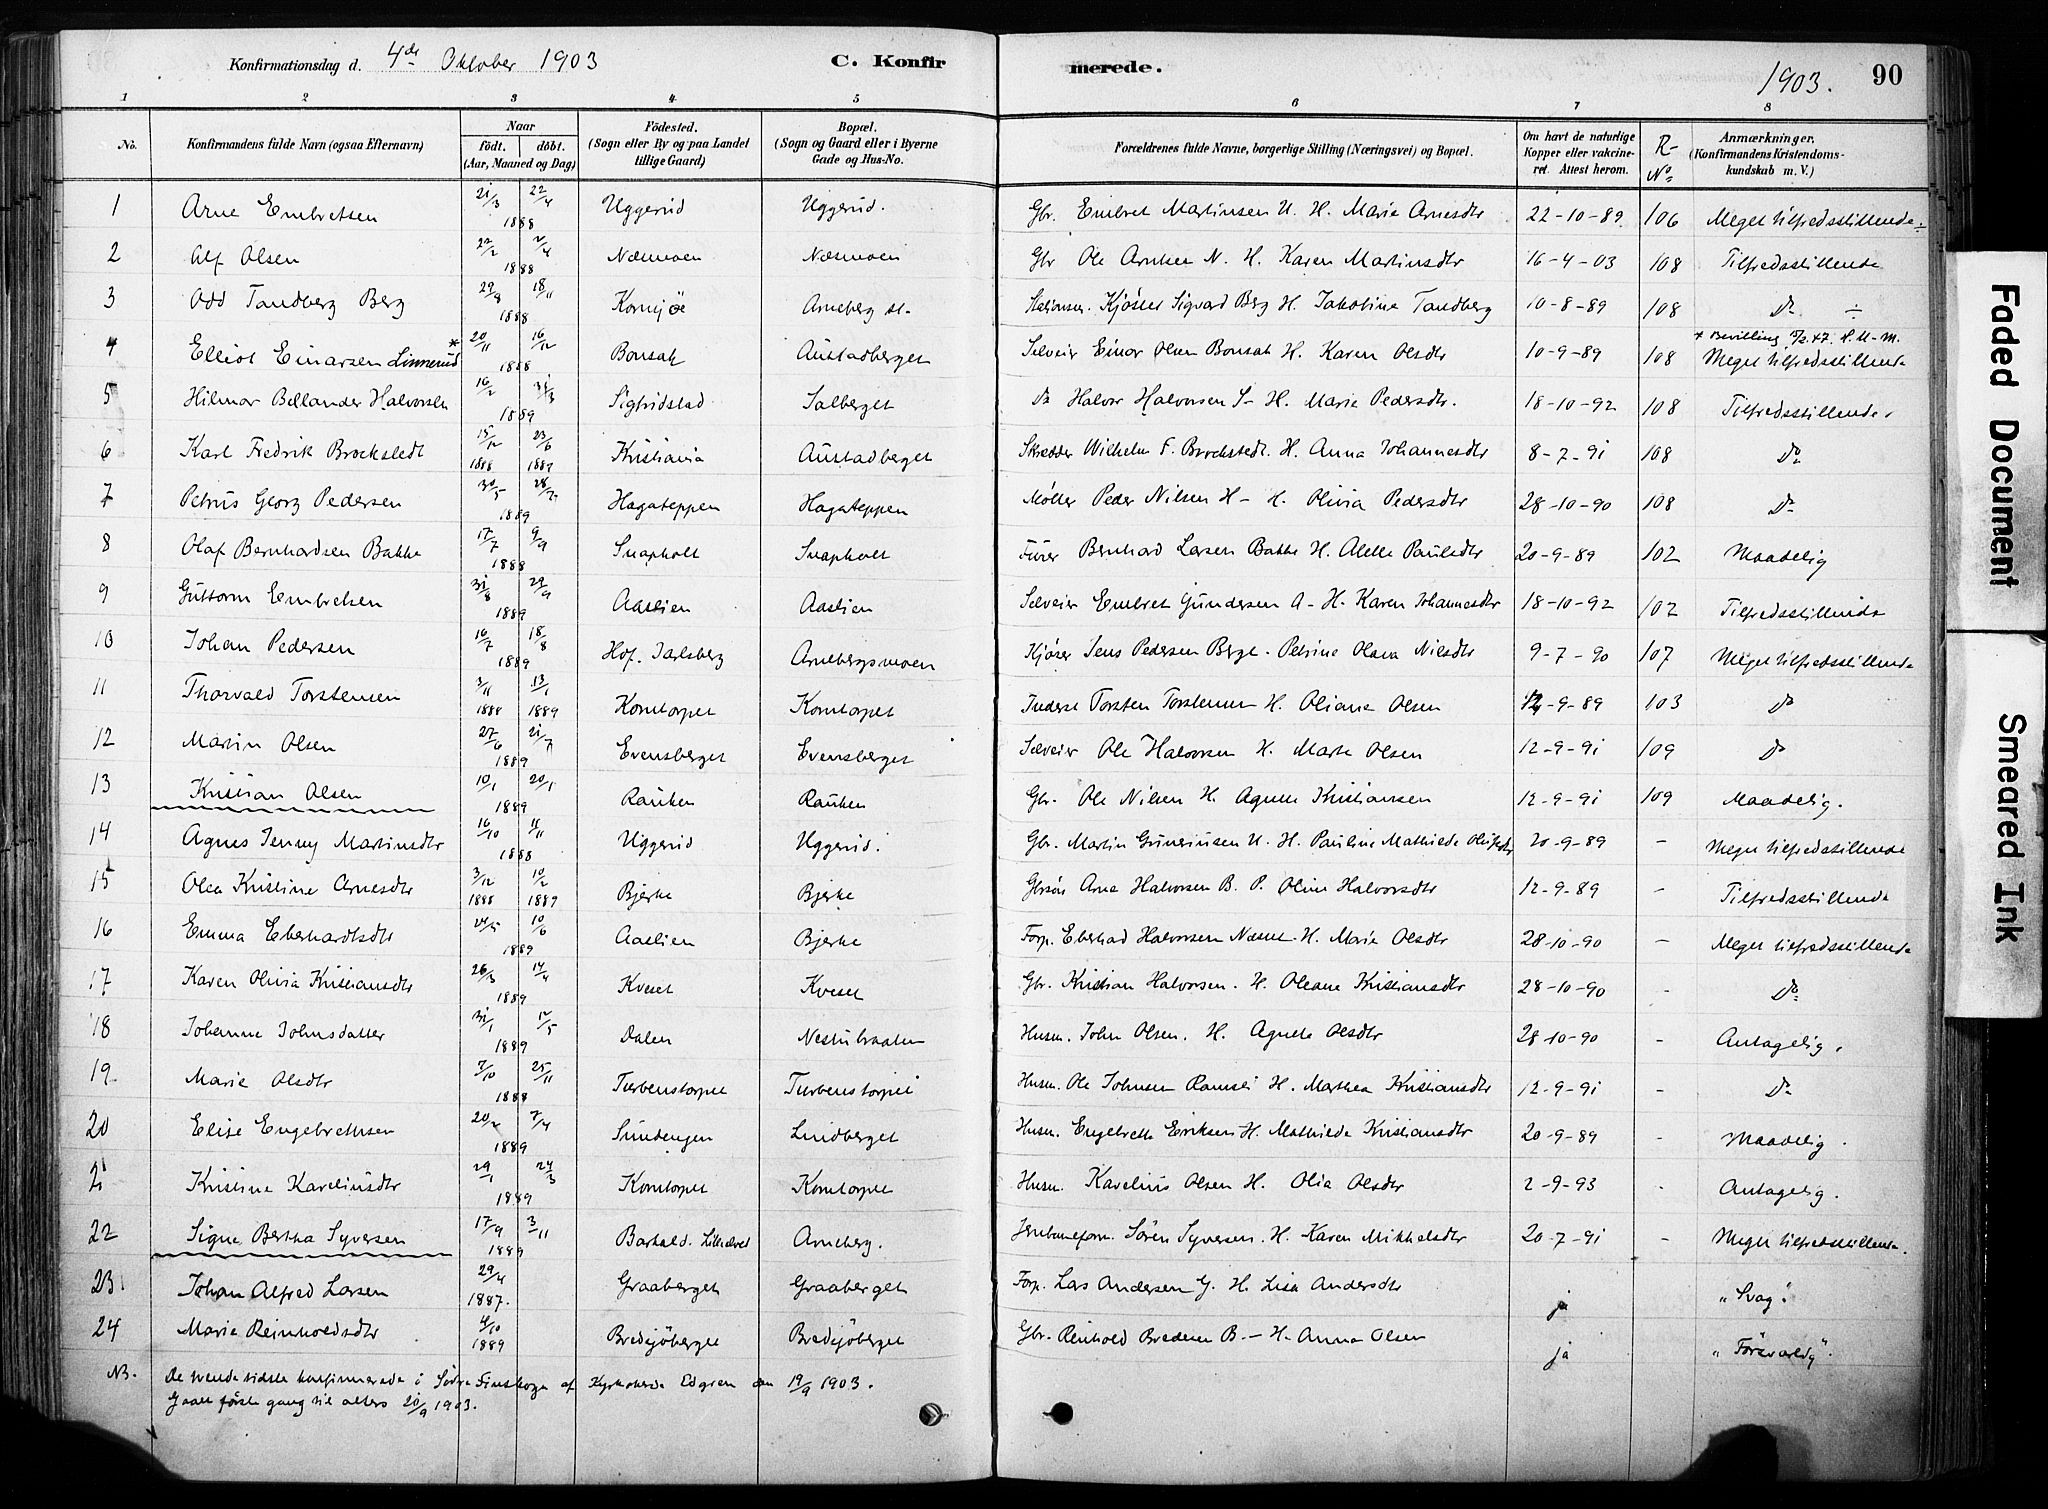 Konfirmationsdag d. 4de Oktober 1903 C. Konfirmerede. 1903. 90
1 2 3 4 5 6 7 8
No. Konfirmandens fulde Navn (ogsaa Efternavn) Naar födt. döbt. (Aar, Maaned og Dag) Födested. (Sogn eller By og paa Landet tillige Gaard) Bopæl. (Sogn og Gaard eller i Byerne Gade og Hus-No. Forældrenes fulde Navne, borgerlige Stilling (Næringsvei) og Bopæl. Om havt de naturlige Kopper eller vakcineret. Attest herom. R-No Anmærkninger, (Konfirmandens Kristendomskundskab m. V.)
1 Arne Embretsen 21/3 22/4 1888 Uggerud Uggerud. Gbr. Embret Martinsen U. H. Marie Arnesdtr 22-10-89 106 Meget tilfredsstillende ÷
2 Alf Olsen 22/2 2/4 1888 Næsmoen Næsmoen Gbr Ole Arnesen N. H. Karen Martinsdtr 16-4-03 108 Tilfredsstillende
3 Odd Tandberg Berg 29/8 18/11 1888 Kornsjø Arneberg st. Kjöstel Sigvard Berg H. Jakobine Tandberg 10-8-89 108 Do ÷
4 Elliot Einarsen Linnerud* 20/11 16/12 1888 Bonsak Austadberget Selveier Einar Olsen Bonsak H. Karen Olsdtr 10-9-89 108 * Bevilling 5/2 47. Meget tilfredsstillende
5 Hilmar Bellander Halvorsen 16/2 31/3 1889 Sigfridstad Salberget Do Halvor Halvorsen S- H. Marie Pedersdtr. 18-10-92 108 Tilfredsstillende.
6 Karl Fredrik Brockstedt 15/12 1888 23/6 1889 Kristiania Austadberget Skrædder Wilhelm F. Brockstedt. H. Anna Johannesdtr 8-7-91 108 Do
7 Petrus Georg Pedersen 30/5 28/7 1889 Hagateppen Hagateppen Møller Peder Nilsen H- H. Olivia Pedersdtr 28-10-90 108 Do
8 Olaf Bernhardsen Bakke 17/7 9/9 1888 Snapholt Snapholt Bernhard Larsen Bakke H. Alette Paulsdtr 20-9-89 102 Maadelig
9 Guttorm Embretsen 31/8 29/9 1889 Aaslien Aaslien Selveier Embret Gundersen A- H. Karen Johannesdtr 18-10-92 102 Tilfredsstillende
10 Johan Pedersen 16/7 18/8 1889 Hof. Jarlsberg Arnebergsmoen Kjører Jens Pedersen Berge. Petrine Olava Nilsdtr 9-7-90 107 Meget tilfredsstillende
11 Thorvald Torstensen 3/11 1888 13/1 1889 Korntorpet Korntorpet Inderst Torsten Torstensen H. Oliane Olsen 12-9-89 103 Do
12 Martin Olsen 27/6 21/7 1889 Evensberget Evensberget Selveier Ole Halvorsen H. Marte Olsen 12-9-91 109 Do
13 Kristian Olsen 10/1 20/1 1889 Rauken Rauken Gbr. Ole Nilsen H. Agnete Kristiansen 12-9-91 109 Maadelig.
14 Agnes Jenny Martinsdtr 16/10 11/11 1888 Uggerud Uggerud. Gbr. Martin Gunerinsen U. H. Pauline Mathilde 20-9-89 - Meget tilfredsstillende
15 Olea Kristine Arnesdtr 3/12 1888 10/2 1889 Bjerke Bjerke Arne Halvorsen B. P. Oline Halvorsdtr 12-9-89 - Tilfredsstillende
16 Emma Eberhardtsdtr 24/5 10/6 1889 Aaslien Bjerke Forp. Eberhard Halvorsen Næset. H. Marie Olsdtr 28-10-90 - Meget tilfredsstillende
17 Karen Olivia Kristiansdtr 26/3 14/4 1889 Kveset Kveset Gbr. Kristian Halvorsen. H. Oleane Kristiansdtr 28-10-90 - Do
18 Johanne Johnsdatter 31/1 12/5 1889 Dalen Nestubraaten Husm. John Olsen. H. Agnete Olsdtr 28-10-90 - Antagelig.
19 Marie Olsdtr 7/10 25/11 1888 Turbenstorpet Turbenstorpet Husm. Ole Johnsen Ramsli H. Marthea Kristiansdtr 12-9-91 - Do
20 Elise Engebrethsen 20/2 7/4 1889 Sundengen Lindberget Husm. Engebreth Eriksen H. Mathilde Kristiansdtr 20-9-89 - Maadelig.
21 Kristine Kareliusdtr 29/1 24/3 1889 Korntorpet Korntorpet Husm. Karelius Olsen H. Olia Olsdtr 2-9-93 - Antagelig.
22 Signe Bertha Syversen 17/9 3/11 1889 Barkald. Lilleelvedal Arneberg. Jernbaneform. Sören Syversen. H. Karen Mikkelsdtr 20-7-91 - Meget tilfredsstillende.
23 Johan Alfred Larsen 29/4 1887. Graaberget Graaberget Forp. Lars Andersen G. H. Lisa Andersdtr ja "Svag".
24 Marie Reinholdsdtr 4/10 1889 Bredsjöberget Bredsjöberget Gbr. Reinhold Bredesen B. - H. Anna Olsen ja "Försvarlig".
NB. De tvende sidste konfirmerede i Södre Finskoga af Kyrkoherde Edgren den 19/9 1903.
Gaar förste gang til alters 20/9 1903.
Faded Document
Smeared Ink